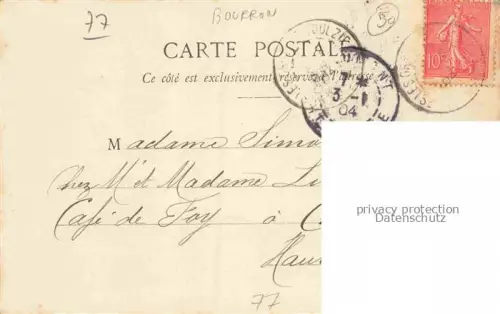 77
BOURRON
CARTE POSTALE
Ce côté est exclusivement réservé à l'adresse
10c
3-1
04
Madame Simo
Chez Mr et Madame Lu
Café de Foy à C
Hau
77
privacy protection
Datenschutz